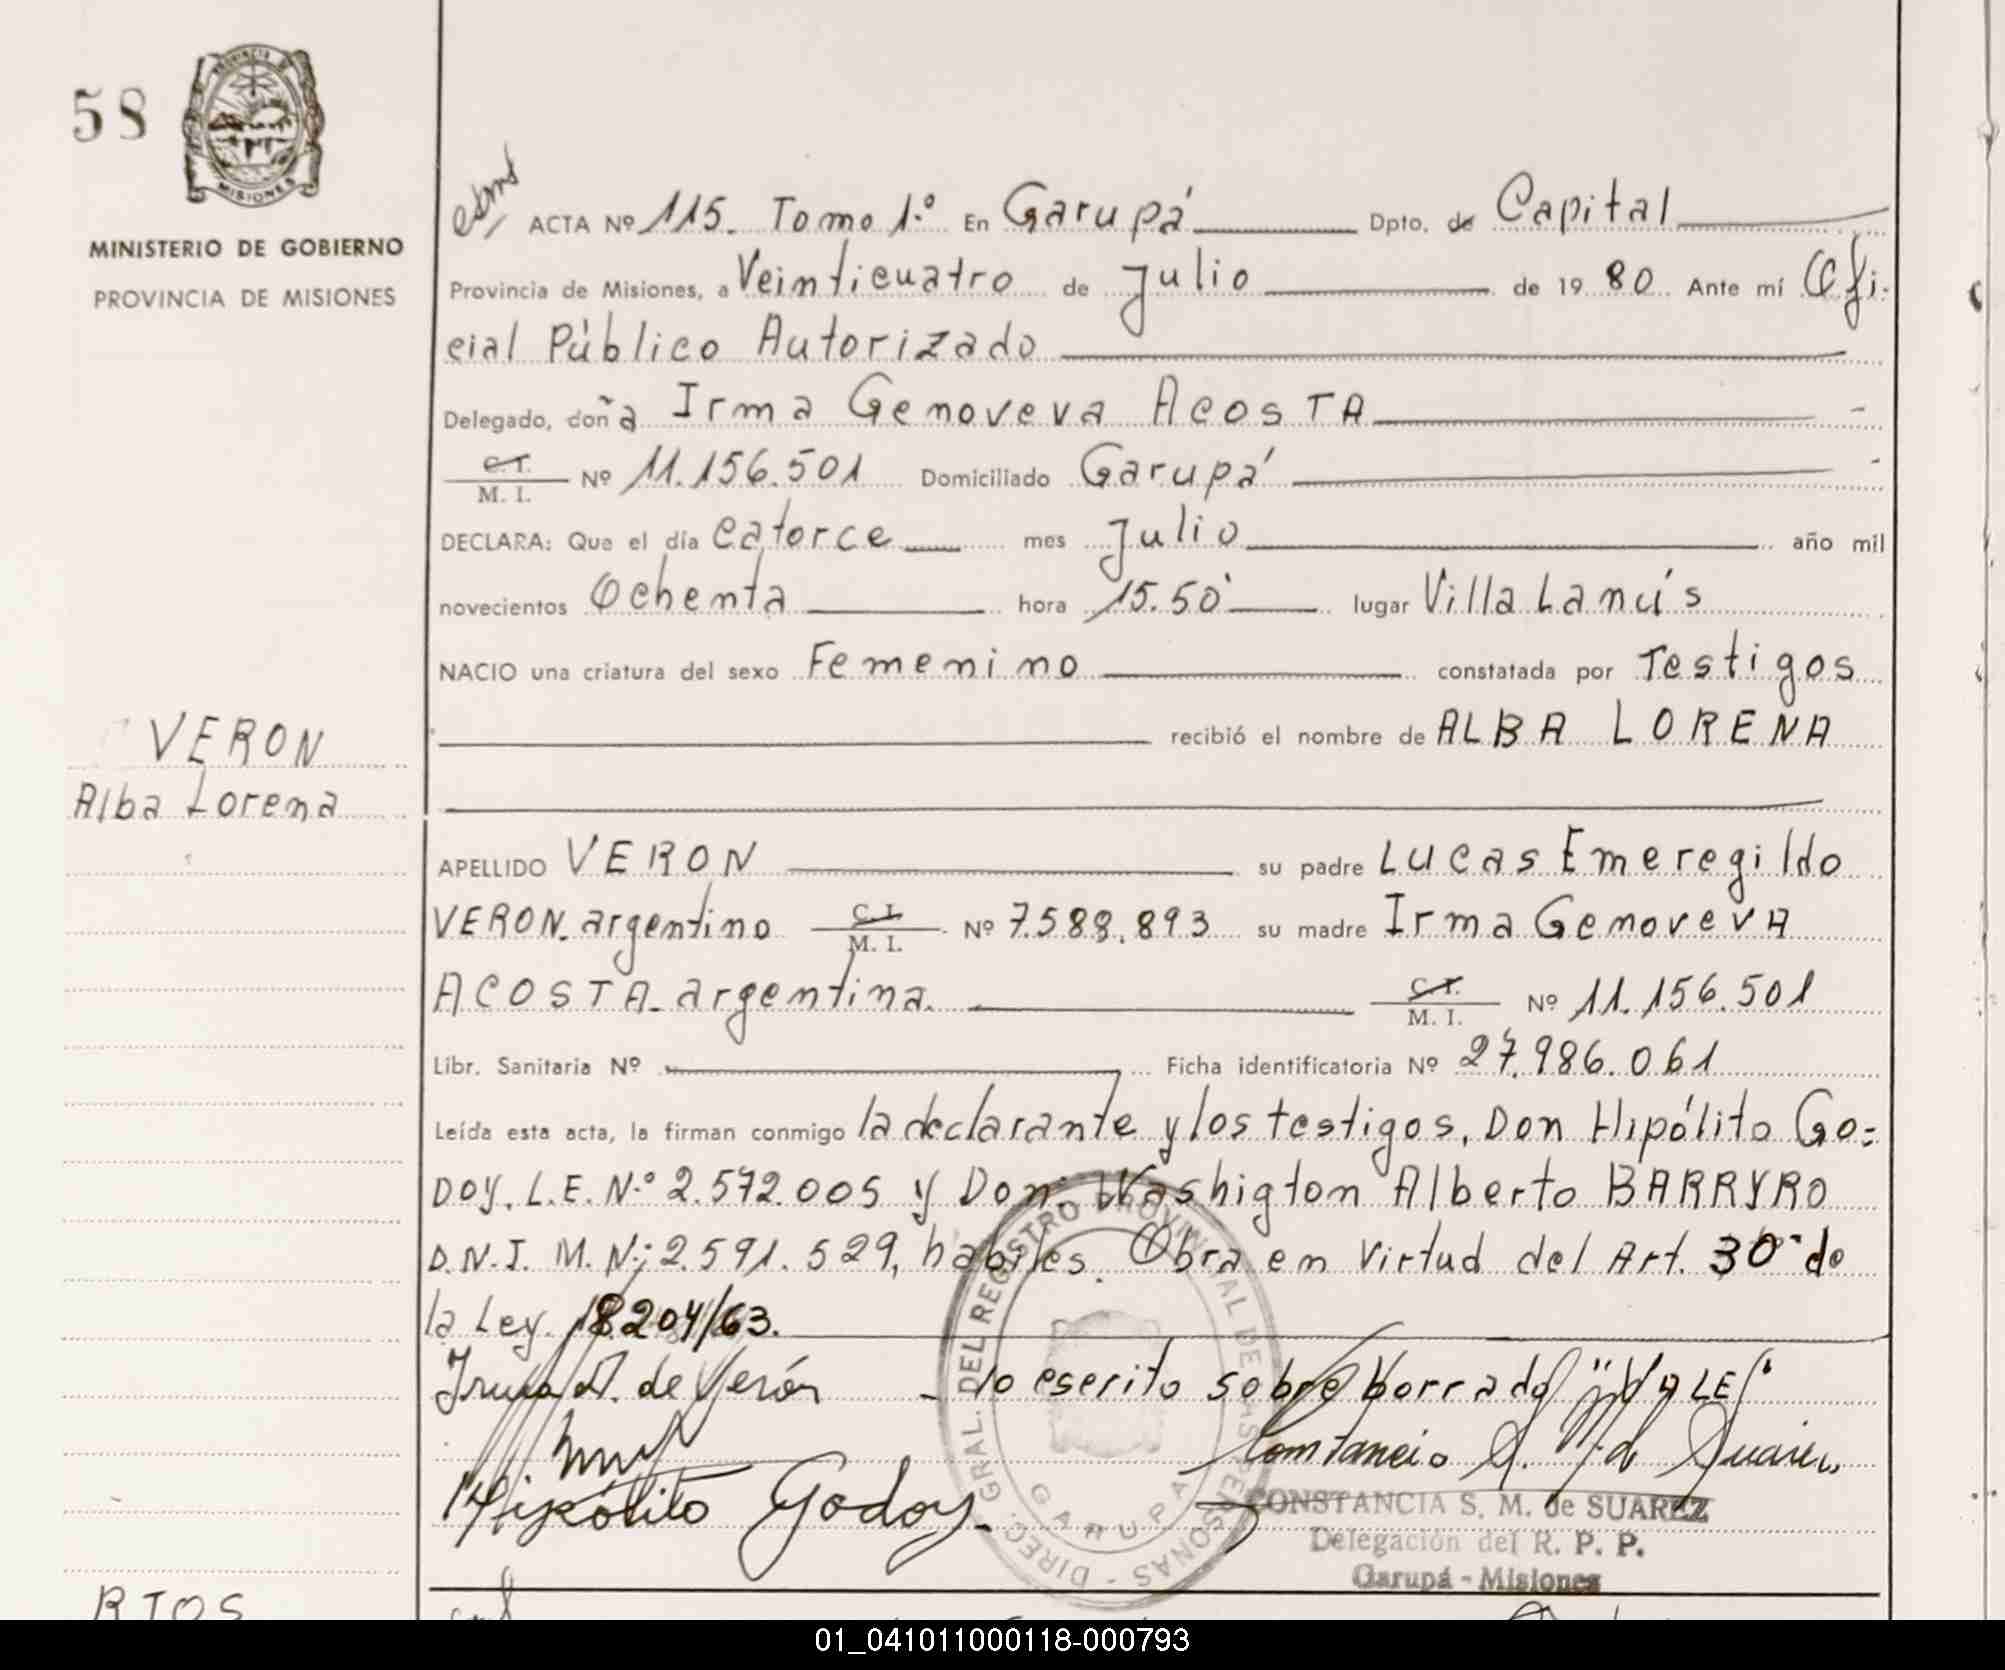 58
PROVINCIA DE
MISIONES
MINISTERIO DE GOBIERNO
PROVINCIA DE MISIONES
ACTA Nº 115. Tomo 1.º En Garupá Dpto. de Capital
Provincia de Misiones, a Veinticuatro de Julio de 19 80 Ante mí Ofi-
cial Público Autorizado
Delegado, doña Irma Genoveva ACOSTA
C.I. M. I. Nº 11.156.501 Domiciliado Garupá
DECLARA: Que el día catorce mes Julio año mil
novecientos Ochenta hora 15.50 lugar Villa Lanús
NACIO una criatura del sexo Femenino constatada por Testigos
recibió el nombre de ALBA LORENA
VERON
Alba Lorena
APELLIDO VERON su padre Lucas Emeregildo
VERON. argentino C.I. M. I. Nº 7.588.893 su madre Irma Genoveva
ACOSTA- argentina. C.I. M. I. Nº 11.156.501
Libr. Sanitaria Nº Ficha identificatoria Nº 27.986.061
Leída esta acta, la firman conmigo la declarante y los testigos, Don Hipólito Go=
DOY. L.E. N.º 2.572.005 y Don: Washigton Alberto BARRYRO
D.N.I. M. N: 2.591.529, hábiles. Obra en Virtud del Art. 30 de
la Ley. 18204/63.
Irma A. de Verón - lo escrito sobre borrado "VALE"
Hipólito Godoy.
DIREC. GRAL. DEL REGISTRO PROVINCIAL DE LAS PERSONAS -
GARUPA
CONSTANCIA S. M. de SUAREZ
Delegación del R. P. P.
Garupá - Misiones
RIOS
01_041011000118-000793